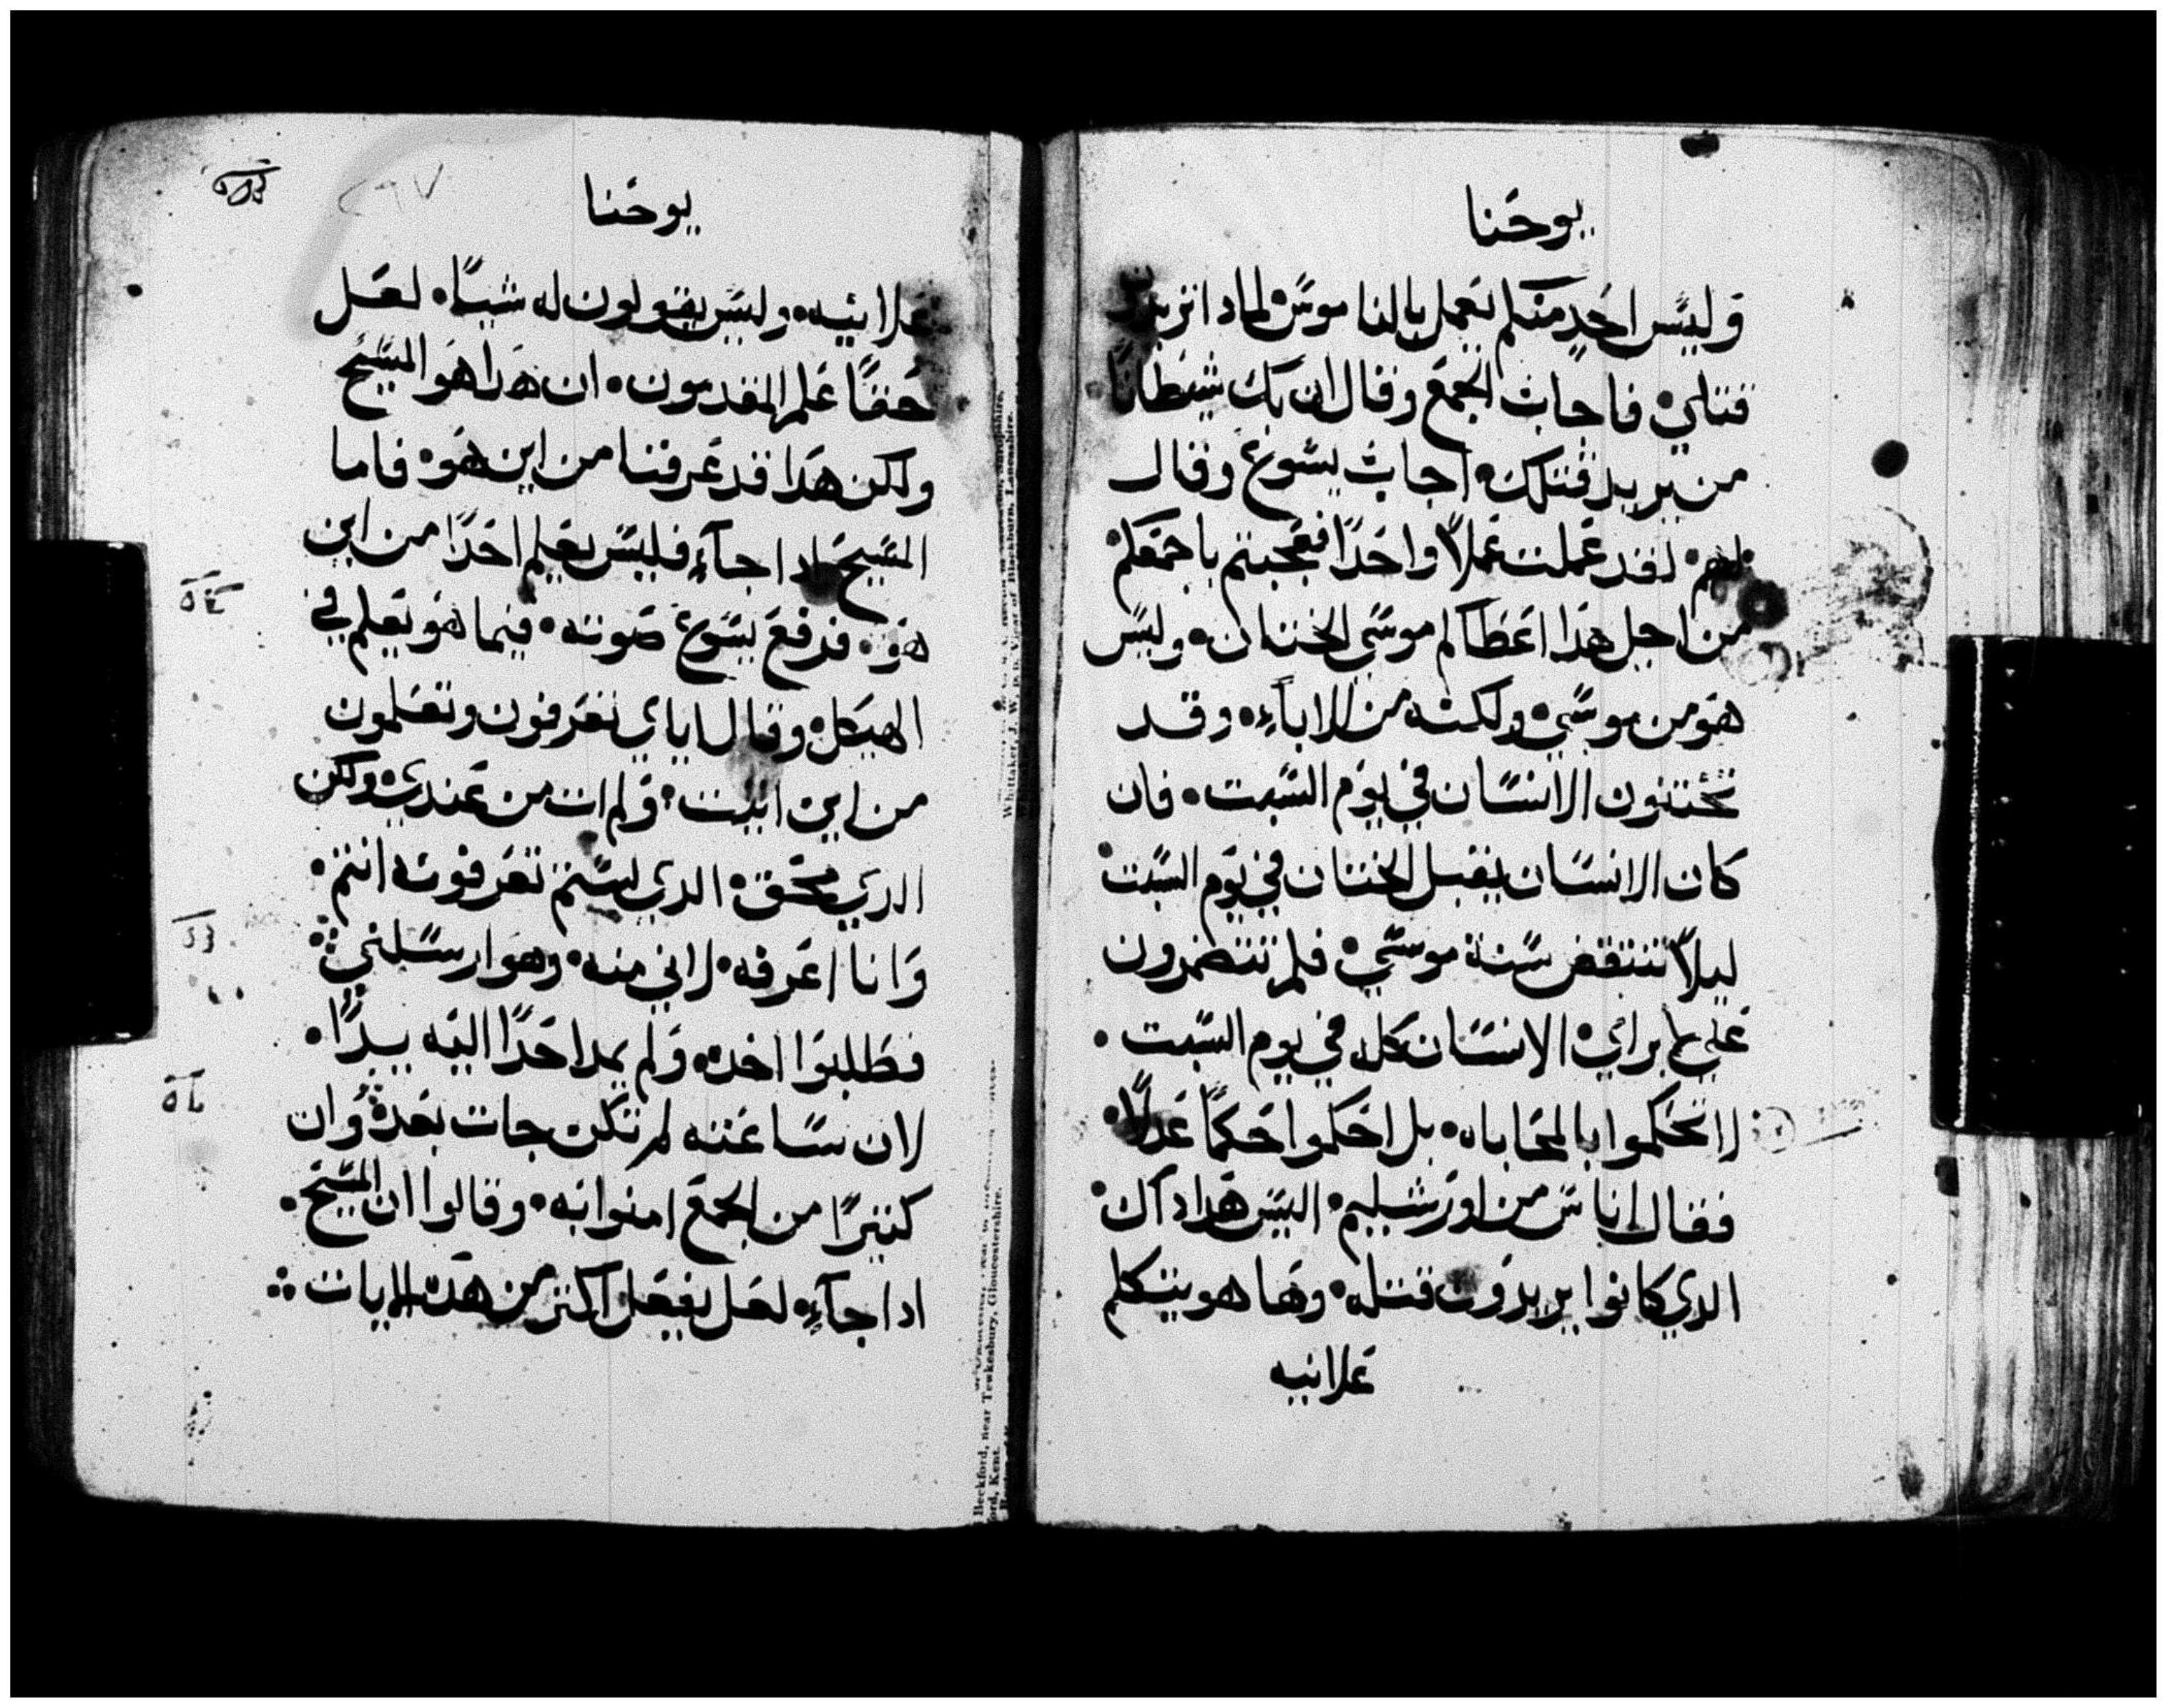 يوحنا
وليس احد منكم يعمل بالناموس لمادا تريدون
قتلي فاجاب الجمع وقال ان بك شيطانا
من يريد قتلك اجاب يسوع وقال
لهم لقد عملت عملا واحدا فعجبتم باجمعكم
من اجل هدا اعطاكم موسي الختان وليس
هو من موسي ولكنه من الاباء وقد
تختنون الانسان في يوم السبت فان
كان الانسان يقبل الختان في يوم السبت
ليلا تنتقض سنة موسي فلم تتضمرون
علي ابراي الانسان كله في يوم السبت
لا تحكموا بالمحاباه بل احكموا حكما عدلا
فقال اناس من اورشليم اليس هدا داك
الدي كانوا يريدون قتله وها هو يتكلم
علانيه
يوحنا
علانيه وليس يقولون له شيا لعل
حقا علم المقدمون ان هدا هو المسيح
ولكن هدا قد عرفنا من اين هو فاما
المسيح ادا جآء فليس يعلم احدا من اين
هو فرفع يسوع صوته فيما هو يعلم في
الهيكل وقال اياي تعرفون وتعلمون
من اين اتيت ولم ات من عندي ولكن
الدي محق الدي لستم تعرفونه انتم
وانا اعرفه لاني منه وهو ارسلني
فطلبوا اخده ولم يمد احدا اليه يدا
لان ساعته لم تكن جات بعد وان
كتيرا من الجمع امنوا به وقالوا ان المسيح
ادا جآء لعل يفعل اكتر من هده الايات